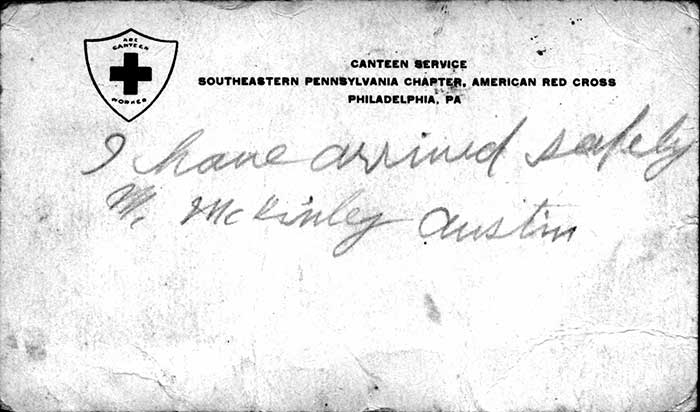 ARC
CANTEEN
WORKER
CANTEEN SERVICE
SOUTHEASTERN PENNSYLVANIA CHAPTER, AMERICAN RED CROSS
PHILADELPHIA, PA
I have arrived safely
M. McKinley Austin